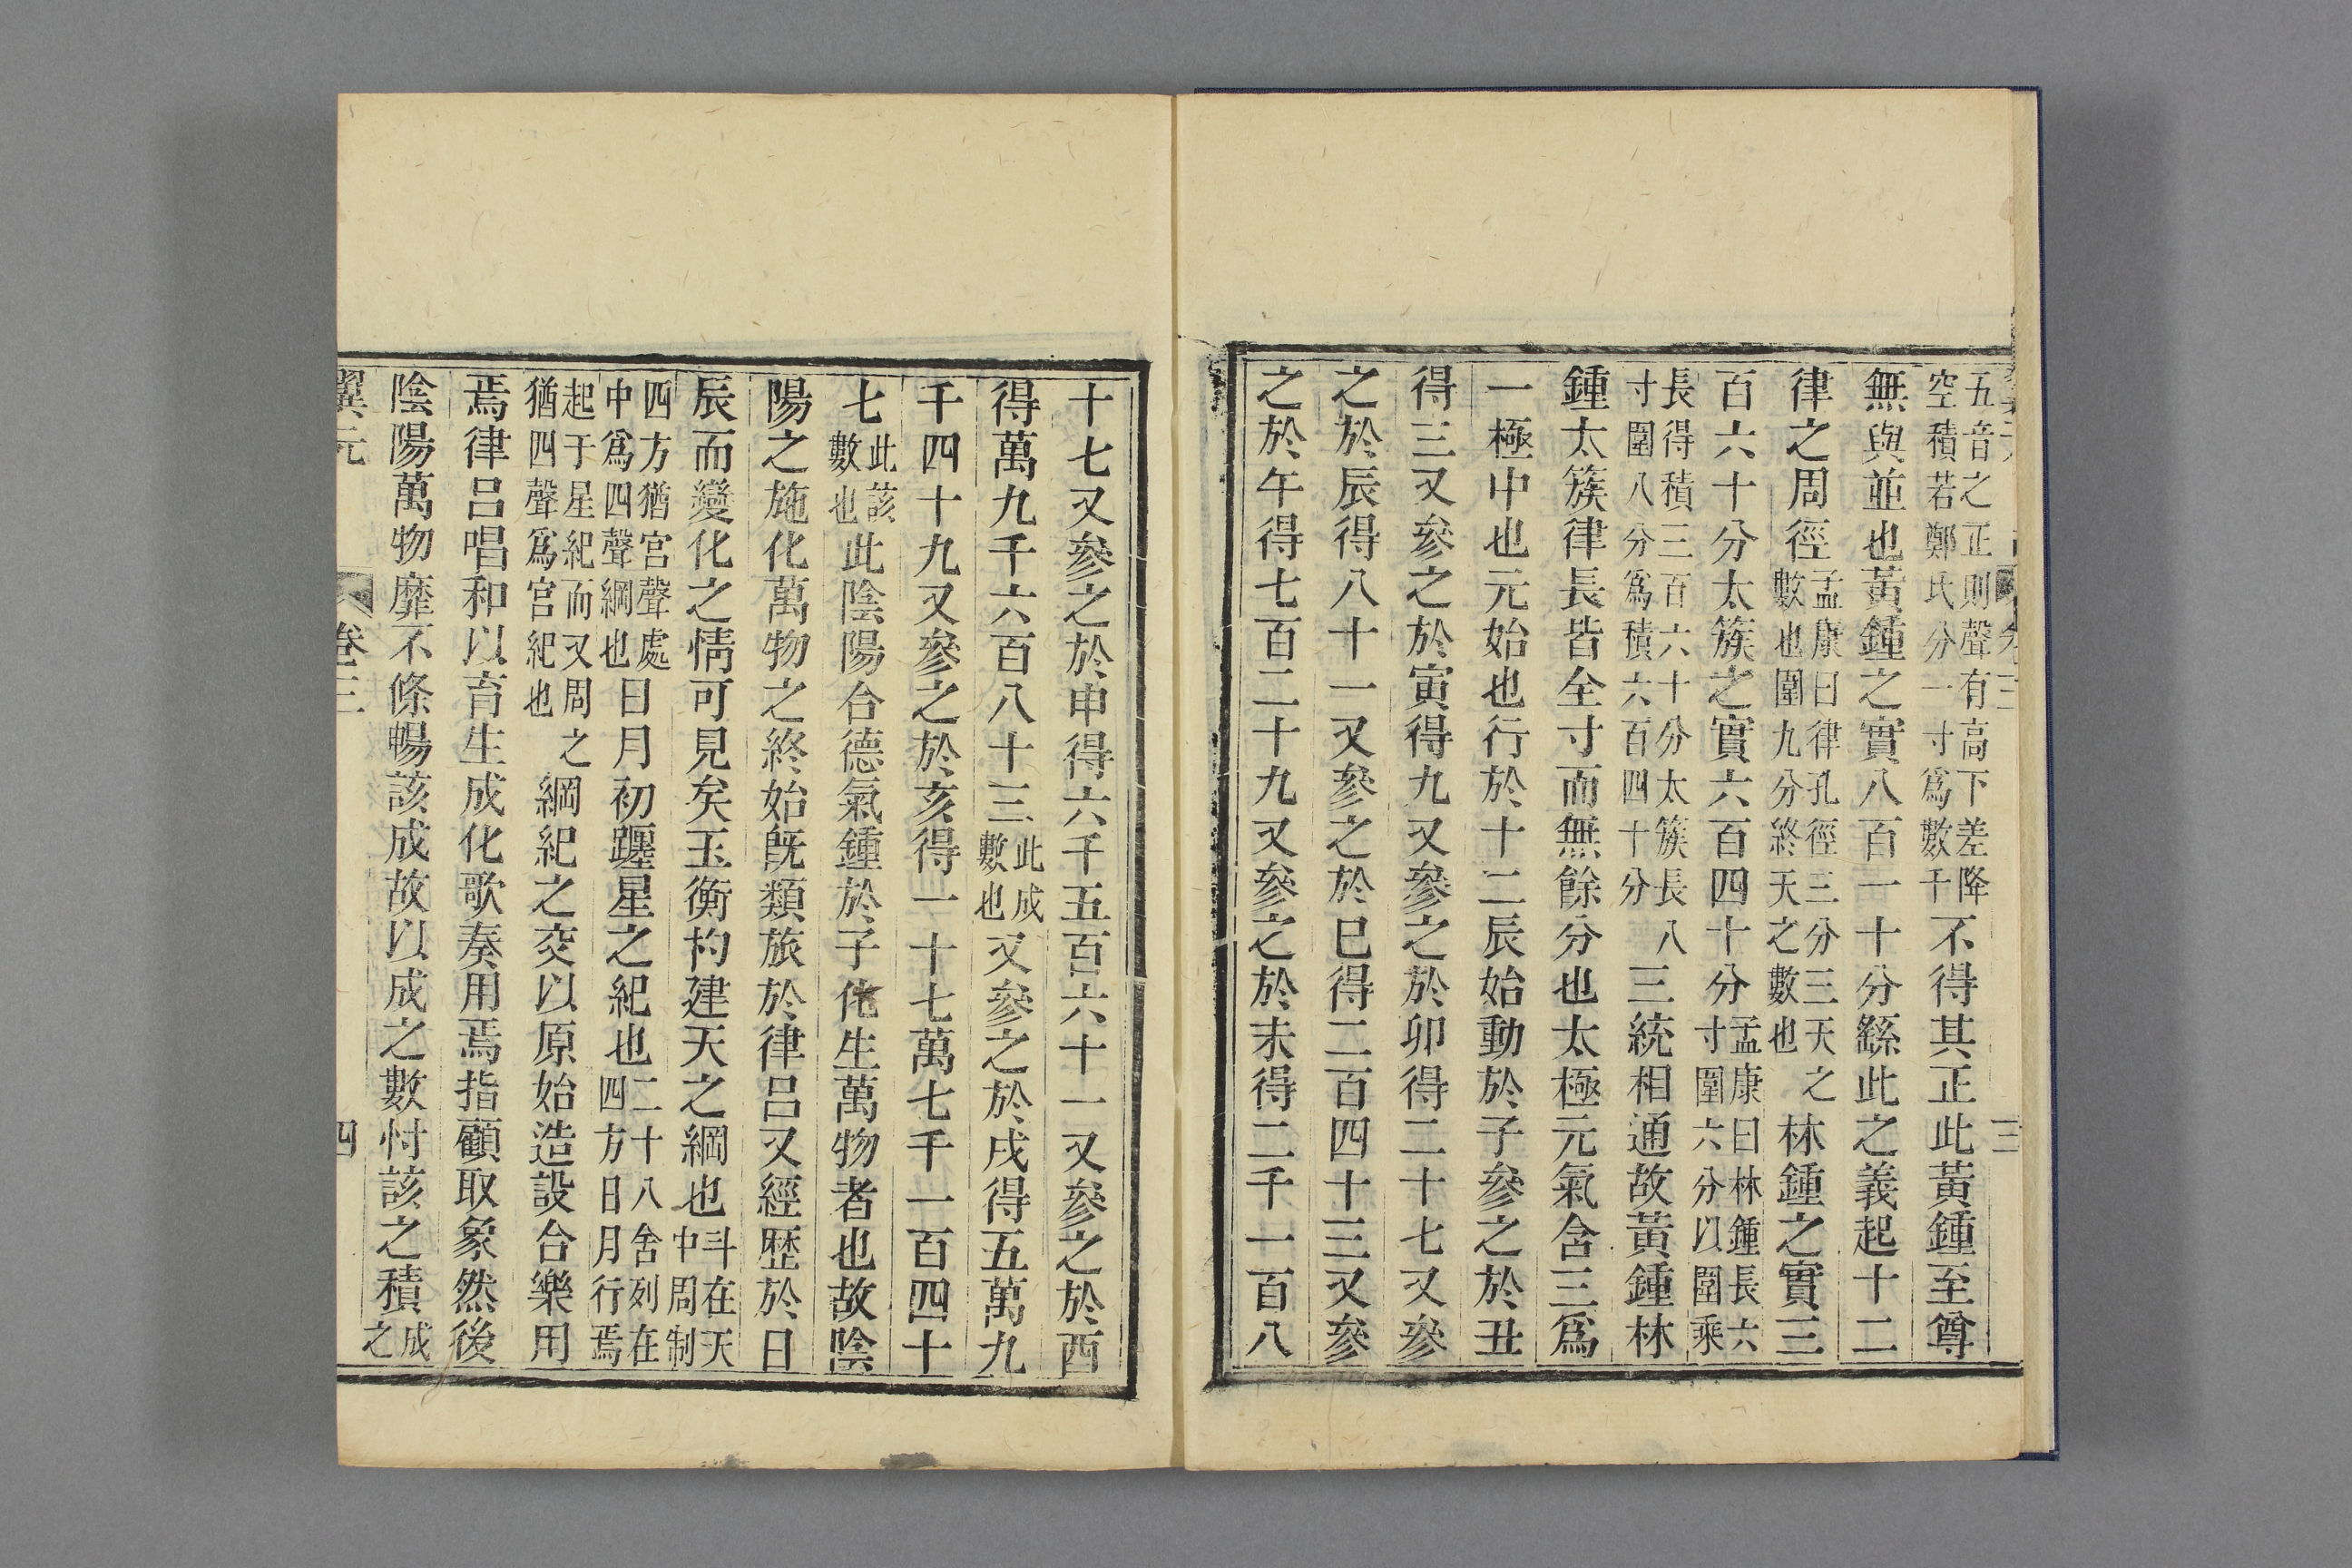 五音之正則聲有高下差降空積若鄭氏分一寸爲數千不得其正此黃鍾至尊
無與並也黃鍾之實八百一十分繇此之義起十二
律之周徑孟康曰律孔徑三分三天之數也圍九分終天之數也林鍾之實三
百六十分太簇之實六百四十分孟康曰林鍾長六寸圍六分以圍乘
長得積三百六十分太簇長八寸圍八分爲積六百四十分三統相通故黃鍾林
鍾太簇律長皆全寸而無餘分也太極元氣含三爲
一極中也元始也行於十二辰始動於子參之於丑
得三又參之於寅得九又參之於卯得二十七又參
之於辰得八十一又參之於巳得二百四十三又參
之於午得七百二十九又參之於未得二千一百八
十七又參之於申得六千五百六十一又參之於酉
得萬九千六百八十三此成數也又參之於戌得五萬九
千四十九又參之於亥得一十七萬七千一百四十
七此該數也此陰陽合德氣鍾於子化生萬物者也故陰
陽之施化萬物之終始旣類旅於律呂又經歷於日
辰而變化之情可見矣玉衡杓建天之綱也斗在天中周制
四方猶宮聲處中爲四聲綱也日月初躔星之紀也二十八舍列在四方日月行焉
起于星紀而又周之猶四聲爲宮紀也綱紀之交以原始造設合樂用
焉律呂唱和以育生成化歌奏用焉指顧取象然後
陰陽萬物靡不條暢該成故以成之數忖該之積成之
翼元 卷三 四